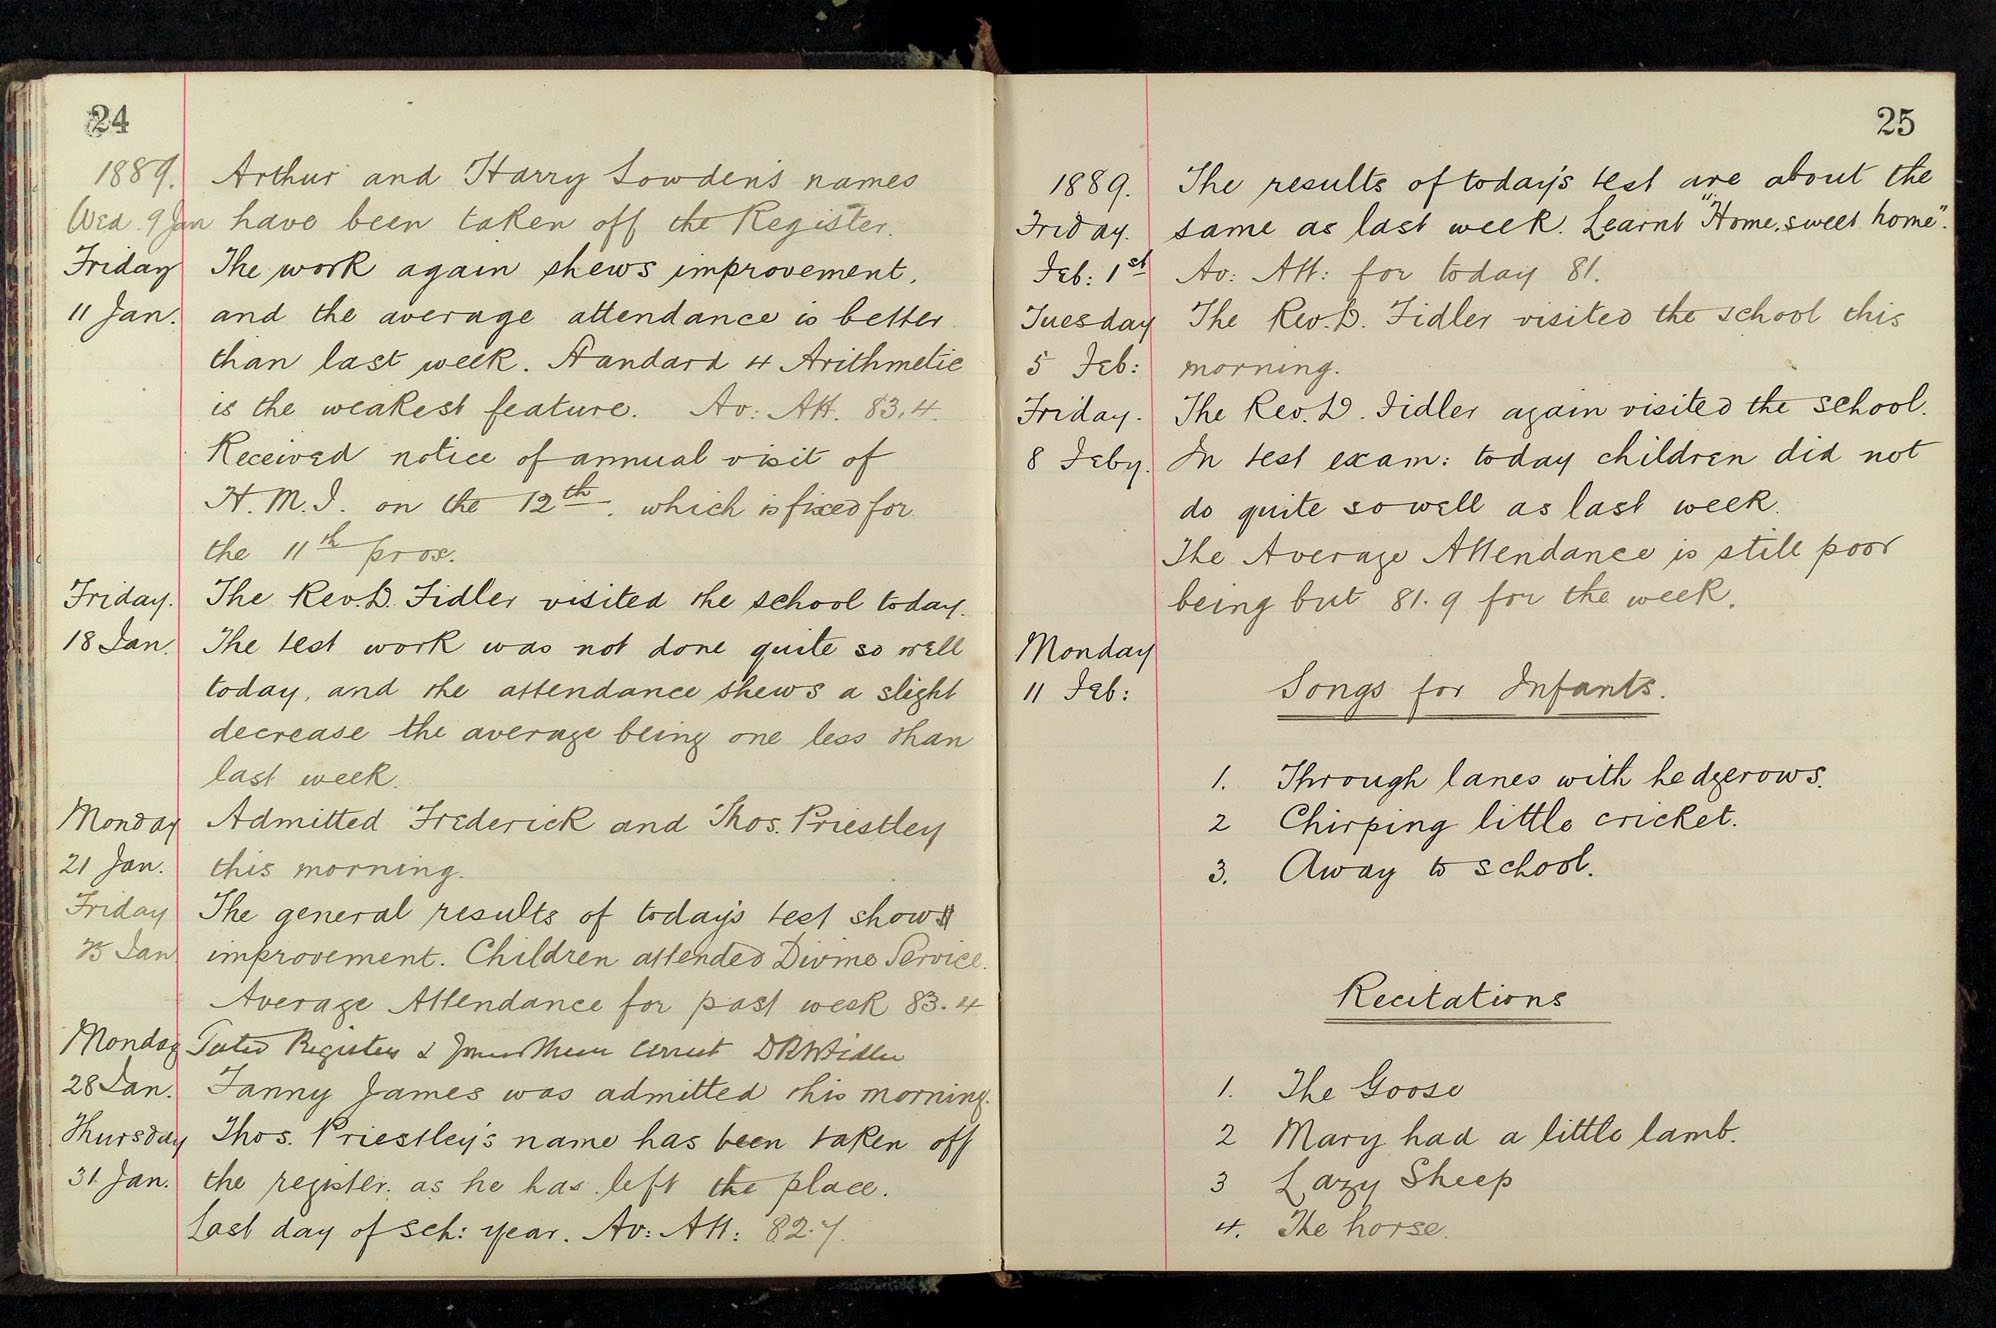 24
1889. Arthur and Harry Lowden's names
Wed. 9 Jan have been taken off the Register.
Friday The work again shews improvement,
11 Jan. and the average attendance is better
than last week. Standard 4 Arithmetic
is the weakest feature. Av: Att. 83.4
Received notice of annual visit of
H.M.I. on the 12th. which is fixed for
the 11th prox.
Friday. The Rev. D. Fidler visited the school today.
18 Jan. The test work was not done quite so well
today, and the attendance shews a slight
decrease the average being one less than
last week.
Monday Admitted Frederick and Thos. Priestley
21 Jan. this morning.
Friday The general results of today's test show
25 Jan improvement. Children attended Divine Service.
Average Attendance for past week 83.4
Monday Tested Registers & found them correct
28 Jan. Fanny James was admitted this morning.
Thursday Thos. Priestley's name has been taken off
31 Jan. the register. as he has left the place.
Last day of sch: year. Av: Att: 82.7.
25
1889. The results of today's test are about the
Friday. same as last week. Learnt "Home, sweet home".
Feb: 1st Av: Att: for today 81.
Tuesday The Rev. D. Fidler visited the school this
5 Feb: morning.
Friday. The Rev. D. Fidler again visited the school.
8 Feby. In test exam: today children did not
do quite so well as last week.
The Average Attendance is still poor
being but 81.9 for the week.
Monday
11 Feb: Songs for Infants.
1. Through lanes with hedgerows.
2 Chirping little cricket.
3. Away to school.
Recitations
1. The Goose
2 Mary had a little lamb.
3 Lazy Sheep
4. The horse.